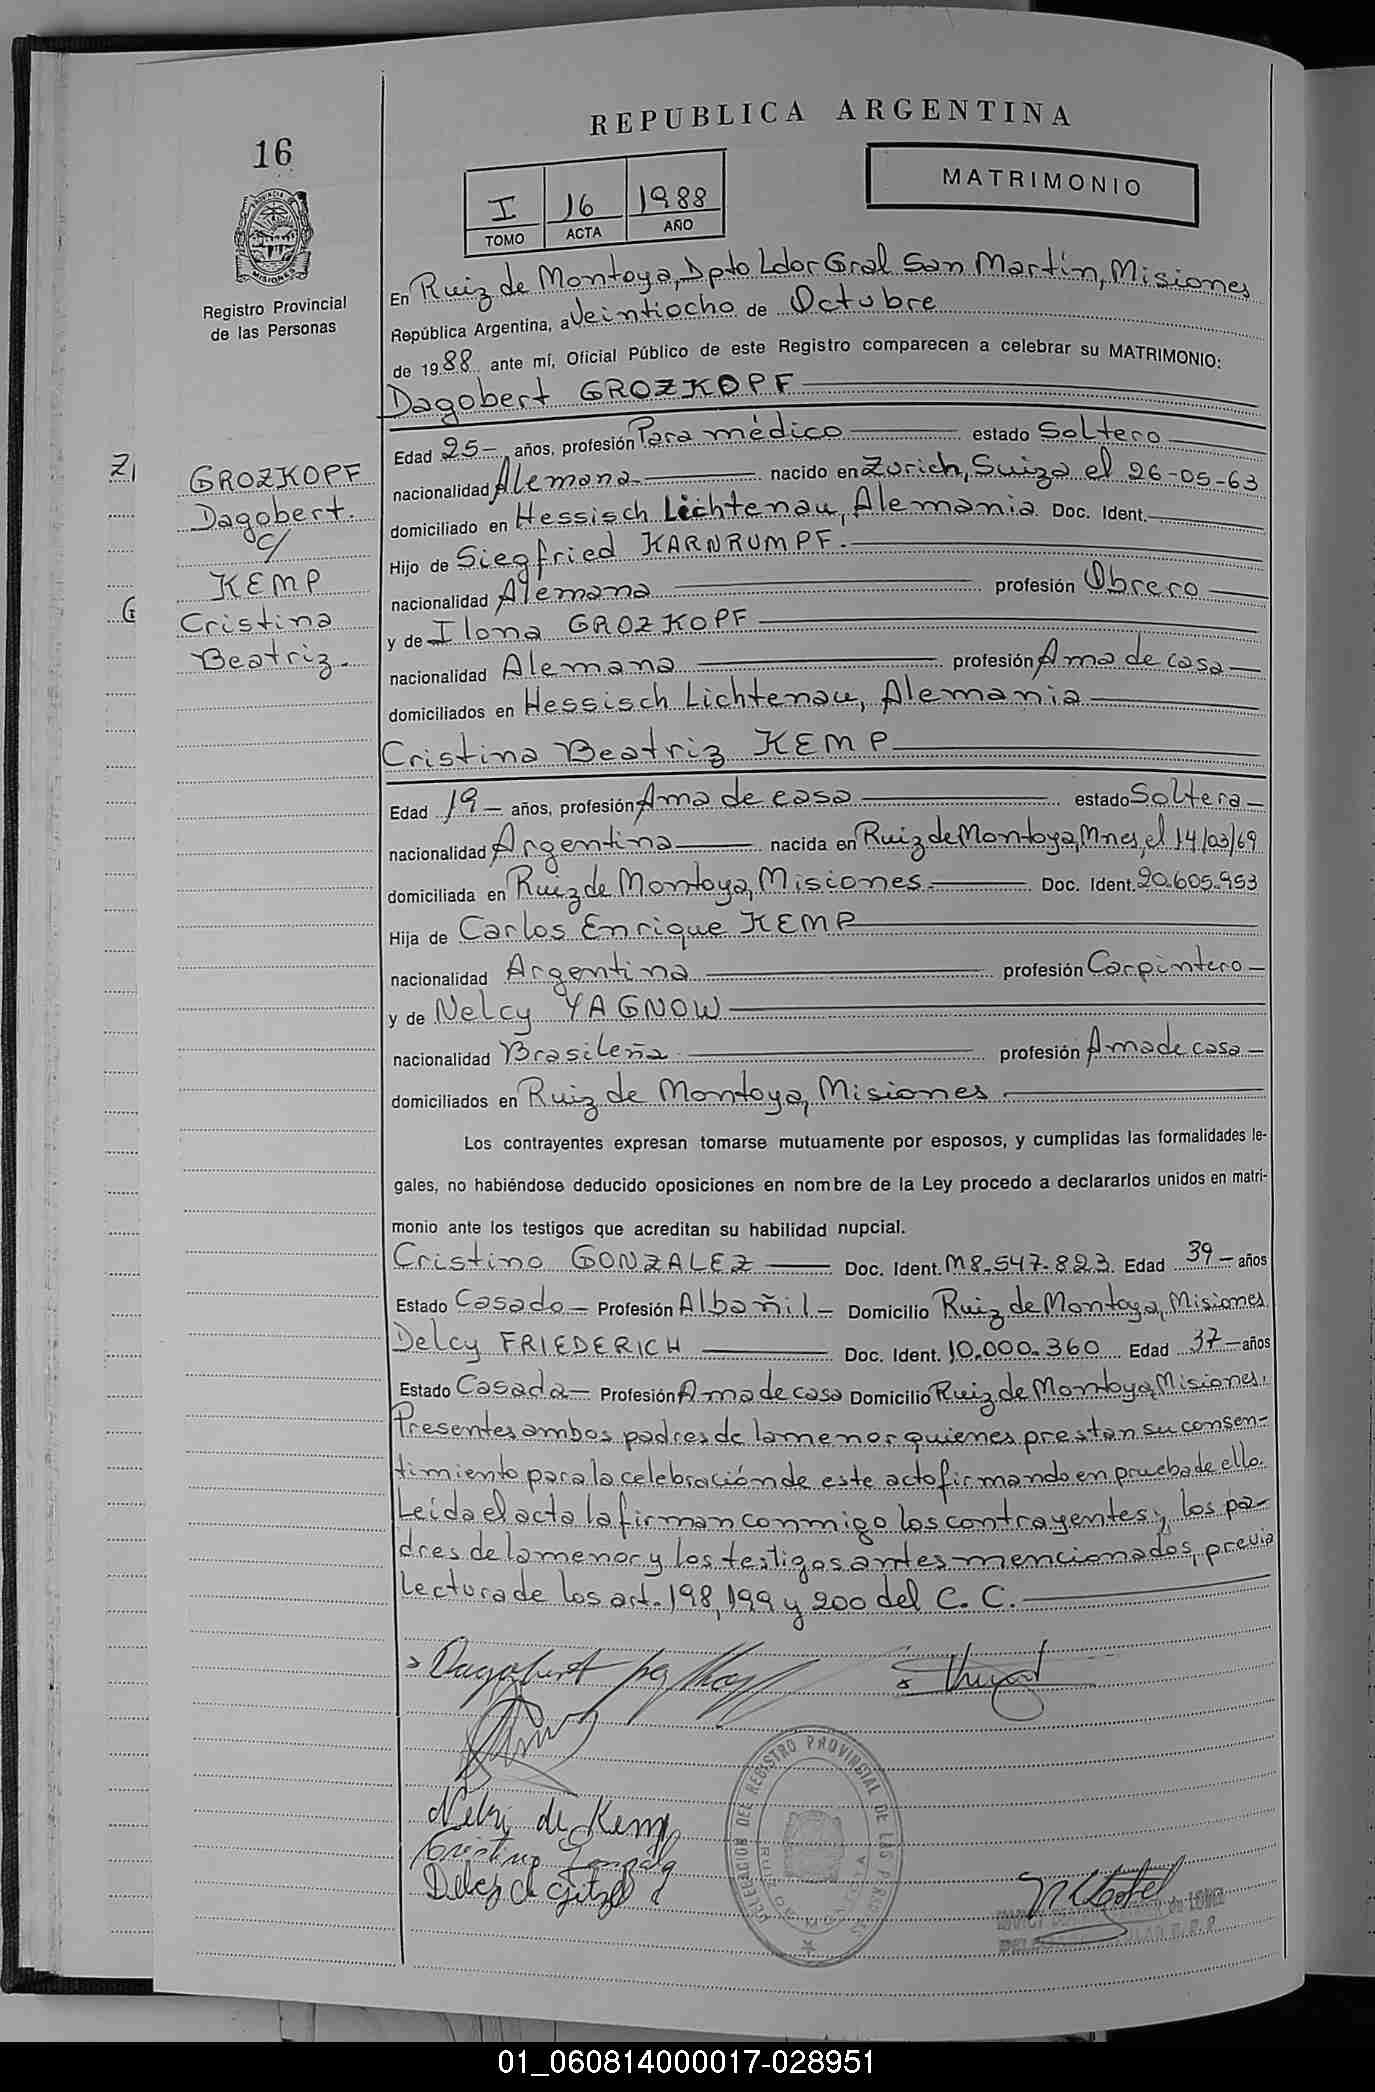 REPUBLICA ARGENTINA
16
MATRIMONIO
I 16 1988
TOMO ACTA AÑO
PROVINCIA DE
MISIONES
Registro Provincial
de las Personas
En Ruiz de Montoya, Dpto Ldor Gral San Martín, Misiones
República Argentina, a Veintiocho de Octubre
de 1988 ante mí, Oficial Público de este Registro comparecen a celebrar su MATRIMONIO:
Dagobert GROZKOPF
Edad 25- años, profesión Para médico estado Soltero
nacionalidad Alemana nacido en Zurich, Suiza el 26-05-63
domiciliado en Hessisch Lichtenau, Alemania Doc. Ident.
Hijo de Siegfried KARNRUMPF.
nacionalidad Alemana profesión Obrero
y de Ilona GROZKOPF
nacionalidad Alemana profesión Ama de casa
domiciliados en Hessisch Lichtenau, Alemania
ZI
GROZKOPF
Dagobert.
c/
G
KEMP
Cristina
Beatriz.
Cristina Beatriz KEMP
Edad 19- años, profesión Ama de casa estado Soltera
nacionalidad Argentina nacida en Ruiz de Montoya, Mnes, el 14/03/69
domiciliada en Ruiz de Montoya, Misiones. Doc. Ident. 20.605.953
Hija de Carlos Enrique KEMP
nacionalidad Argentina profesión Carpintero
y de Nelcy YAGNOW
nacionalidad Brasileña profesión Ama de casa
domiciliados en Ruiz de Montoya, Misiones
Los contrayentes expresan tomarse mutuamente por esposos, y cumplidas las formalidades le-
gales, no habiéndose deducido oposiciones en nombre de la Ley procedo a declararlos unidos en matri-
monio ante los testigos que acreditan su habilidad nupcial.
Cristino GONZALEZ Doc. Ident. M8.547.823 Edad 39- años
Estado Casado Profesión Albañil Domicilio Ruiz de Montoya, Misiones
Delcy FRIEDERICH Doc. Ident. 10.000.360 Edad 37- años
Estado Casada Profesión Ama de casa Domicilio Ruiz de Montoya, Misiones.
Presentes ambos padres de la menor quienes prestan su consen-
timiento para la celebración de este acto firmando en prueba de ello.
Leída el acta la firman conmigo los contrayentes, los pa-
dres de la menor y los testigos antes mencionados, previa
lectura de los art. 198, 199 y 200 del C. C.
Dagobert
de Kemp
DELEGACION DEL REGISTRO PROVINCIAL DE LAS PERSONAS
RUIZ DE MONTOYA
01_060814000017-028951